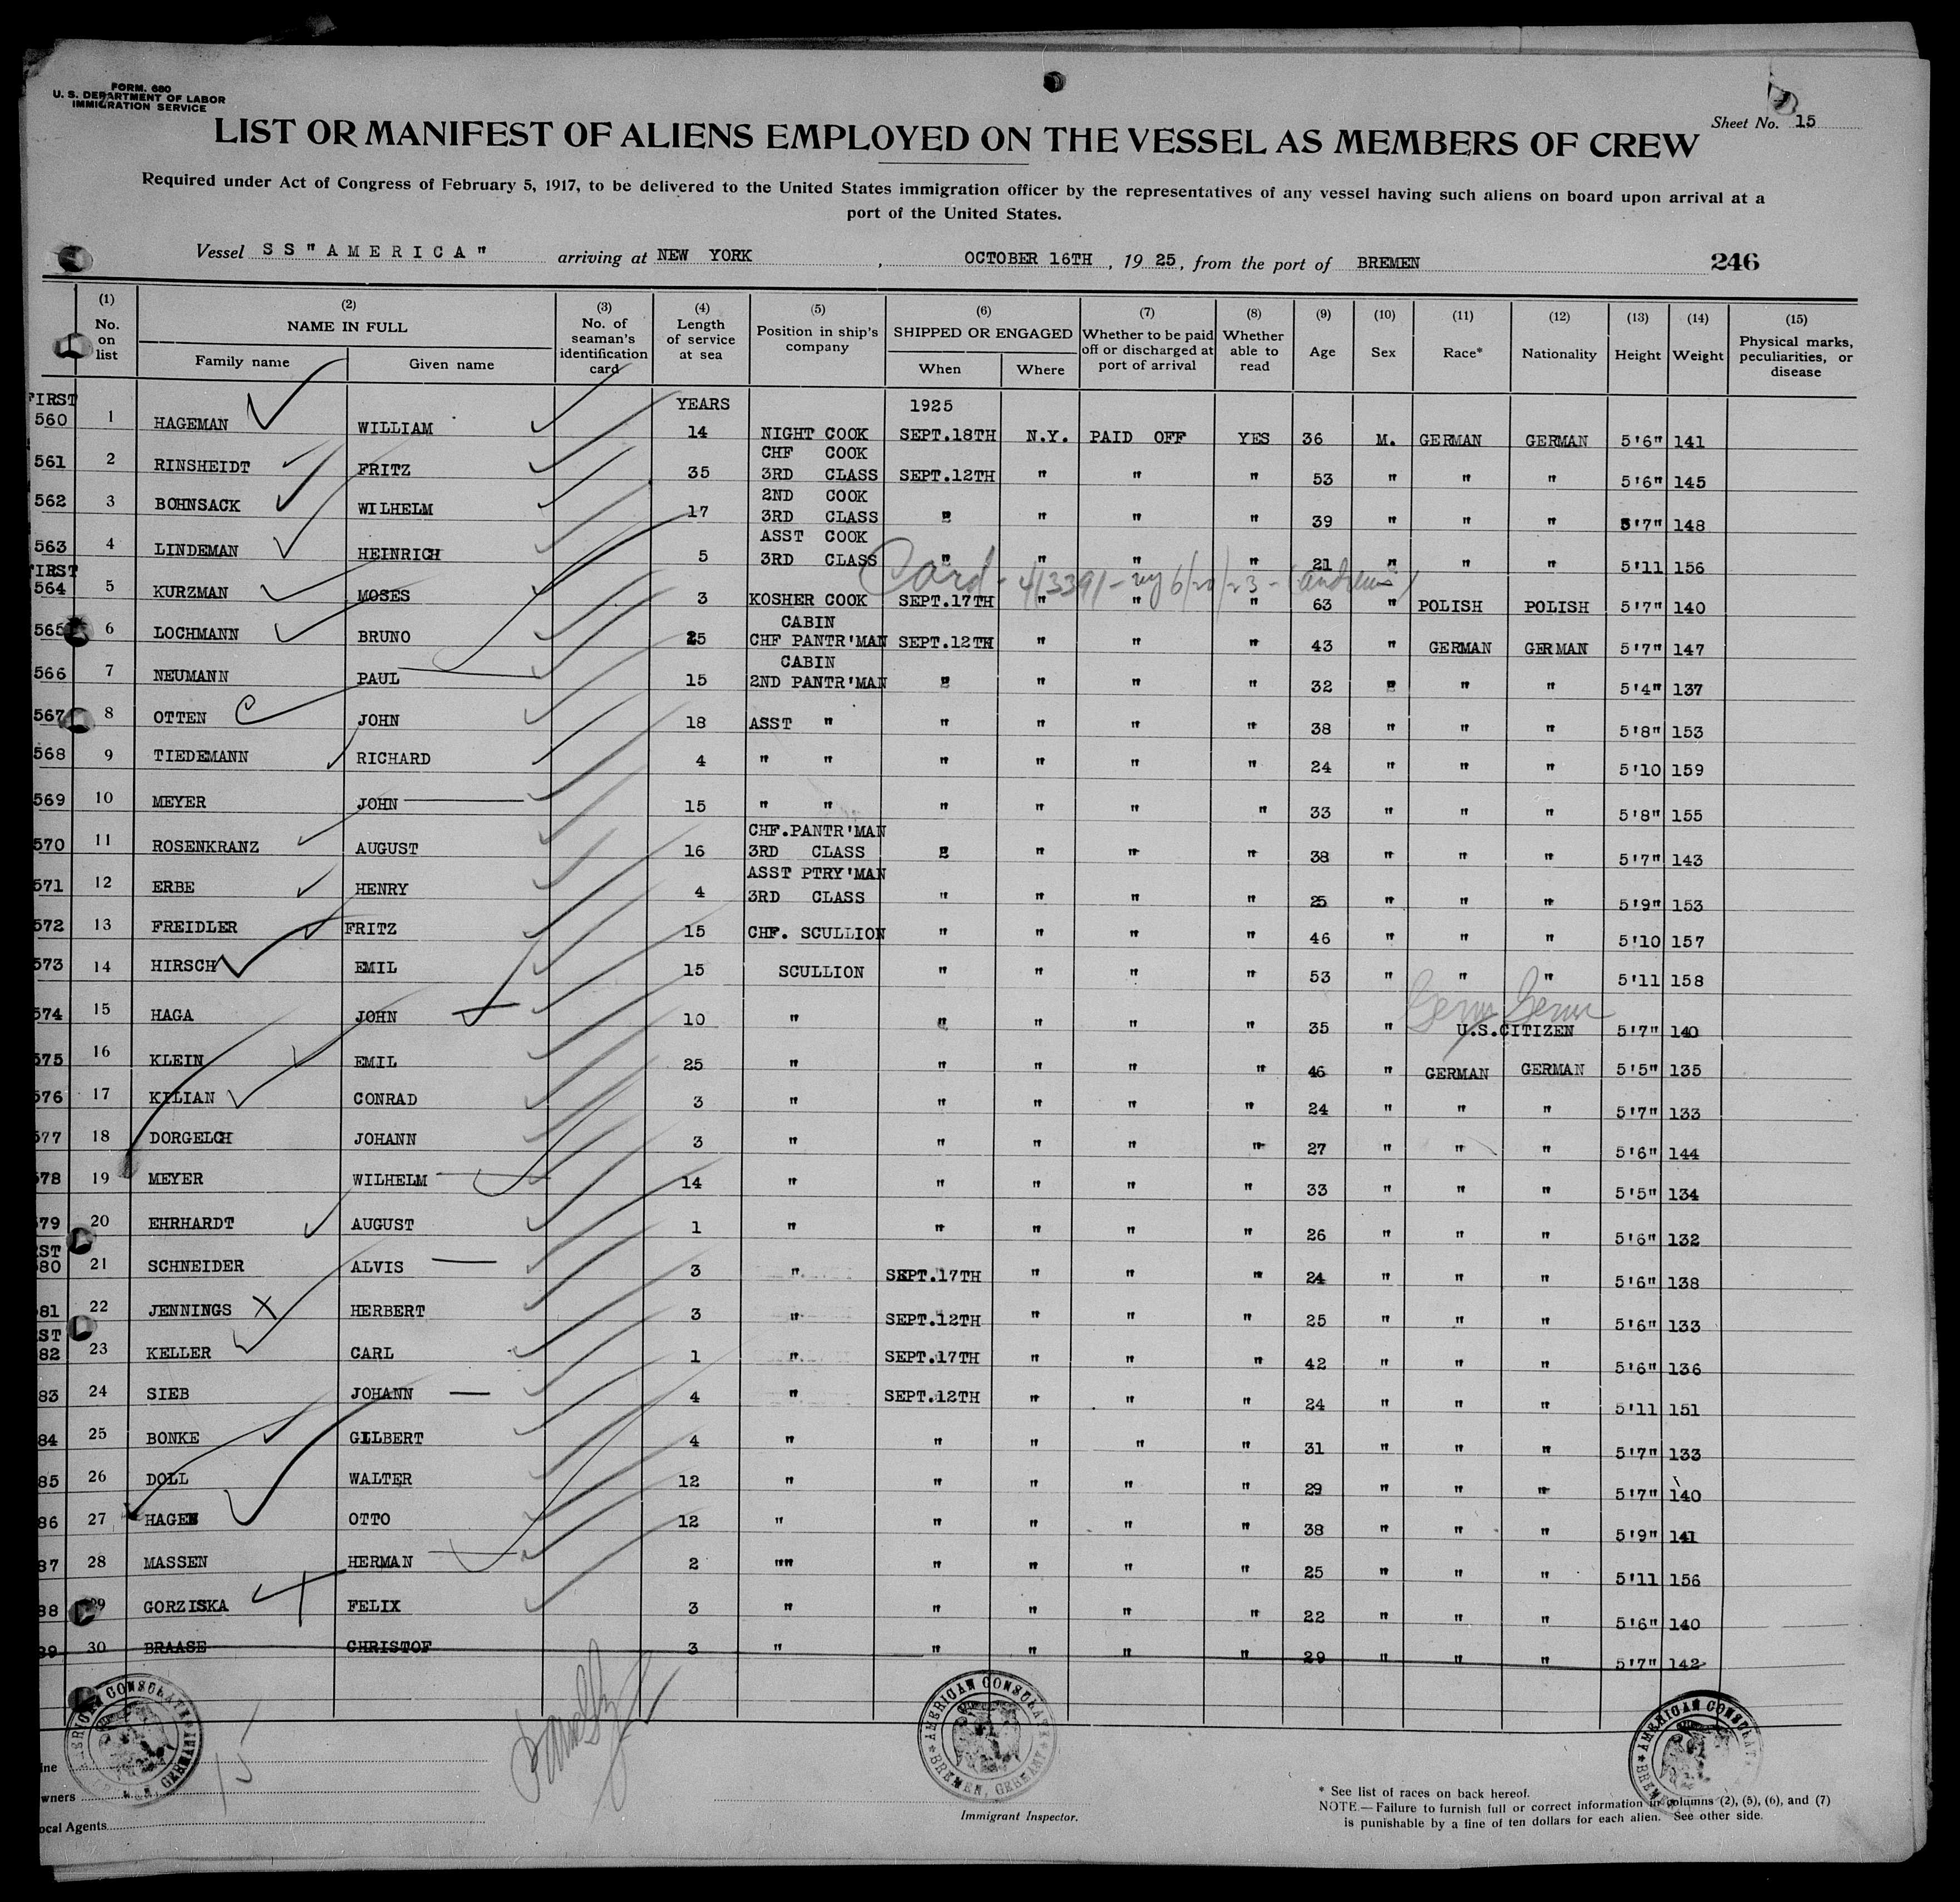 FORM. 680
U. S. DEPARTMENT OF LABOR
IMMIGRATION SERVICE
Sheet No. 15
LIST OR MANIFEST OF ALIENS EMPLOYED ON THE VESSEL AS MEMBERS OF CREW
Required under Act of Congress of February 5, 1917, to be delivered to the United States immigration officer by the representatives of any vessel having such aliens on board upon arrival at a
port of the United States.
Vessel SS "AMERICA" arriving at NEW YORK , OCTOBER 16TH , 19 25 , from the port of BREMEN 246
(1) No. on list (2) NAME IN FULL Family name Given name (3) No. of seaman's identification card (4) Length of service at sea (5) Position in ship's company (6) SHIPPED OR ENGAGED When Where (7) Whether to be paid off or discharged at port of arrival (8) Whether able to read (9) Age (10) Sex (11) Race* (12) Nationality (13) Height (14) Weight (15) Physical marks, peculiarities, or disease
FIRST YEARS 1925
560 1 HAGEMAN WILLIAM 14 NIGHT COOK SEPT.18TH N.Y. PAID OFF YES 36 M. GERMAN GERMAN 5'6" 141
CHF COOK
561 2 RINSHEIDT FRITZ 35 3RD CLASS SEPT.12TH " " " 53 " " " 5'6" 145
2ND COOK
562 3 BOHNSACK WILHELM 17 3RD CLASS " " " " 39 " " " 5'7" 148
ASST COOK
563 4 LINDEMAN HEINRICH 5 3RD CLASS " " " " 21 " " " 5'11 156
FIRST Card - 413391 - ny 6/20/23 - (Andrews)
564 5 KURZMAN MOSES 3 KOSHER COOK SEPT.17TH " " " 63 " POLISH POLISH 5'7" 140
CABIN
565 6 LOCHMANN BRUNO 25 CHF PANTR'MAN SEPT.12TH " " " 43 " GERMAN GERMAN 5'7" 147
CABIN
566 7 NEUMANN PAUL 15 2ND PANTR'MAN " " " " 32 " " " 5'4" 137
567 8 OTTEN JOHN 18 ASST " " " " " 38 " " " 5'8" 153
568 9 TIEDEMANN RICHARD 4 " " " " " " 24 " " " 5'10 159
569 10 MEYER JOHN 15 " " " " " " 33 " " " 5'8" 155
CHF.PANTR'MAN
570 11 ROSENKRANZ AUGUST 16 3RD CLASS " " " " 38 " " " 5'7" 143
ASST PTRY'MAN
571 12 ERBE HENRY 4 3RD CLASS " " " " 25 " " " 5'9" 153
572 13 FREIDLER FRITZ 15 CHF. SCULLION " " " " 46 " " " 5'10 157
573 14 HIRSCH EMIL 15 SCULLION " " " " 53 " " " 5'11 158
Germ Germ
574 15 HAGA JOHN 10 " " " " " 35 " U.S.CITIZEN 5'7" 140
575 16 KLEIN EMIL 25 " " " " " 46 " GERMAN GERMAN 5'5" 135
576 17 KILIAN CONRAD 3 " " " " " 24 " " " 5'7" 133
577 18 DORGELCH JOHANN 3 " " " " " 27 " " " 5'6" 144
578 19 MEYER WILHELM 14 " " " " " 33 " " " 5'5" 134
579 20 EHRHARDT AUGUST 1 " " " " " 26 " " " 5'6" 132
RST
80 21 SCHNEIDER ALVIS 3 " SEPT.17TH " " " 24 " " " 5'6" 138
81 22 JENNINGS X HERBERT 3 " SEPT.12TH " " " 25 " " " 5'6" 133
ST
82 23 KELLER CARL 1 " SEPT.17TH " " " 42 " " " 5'6" 136
83 24 SIEB JOHANN 4 " SEPT.12TH " " " 24 " " " 5'11 151
84 25 BONKE GILBERT 4 " " " " " 31 " " " 5'7" 133
85 26 DOLL WALTER 12 " " " " " 29 " " " 5'7" 140
86 27 HAGEN OTTO 12 " " " " " 38 " " " 5'9" 141
87 28 MASSEN HERMAN 2 "" " " " " 25 " " " 5'11 156
88 29 GORZISKA FELIX 3 " " " " " 22 " " " 5'6" 140
89 30 BRAASE CHRISTOF 3 " " " " " 29 " " " 5'7" 142
AMERICAN CONSULATE BREMEN, GERMANY
AMERICAN CONSULATE BREMEN, GERMANY
AMERICAN CONSULATE BREMEN
15
ine
wners
ocal Agents
Immigrant Inspector.
* See list of races on back hereof.
NOTE.—Failure to furnish full or correct information in columns (2), (5), (6), and (7)
is punishable by a fine of ten dollars for each alien. See other side.